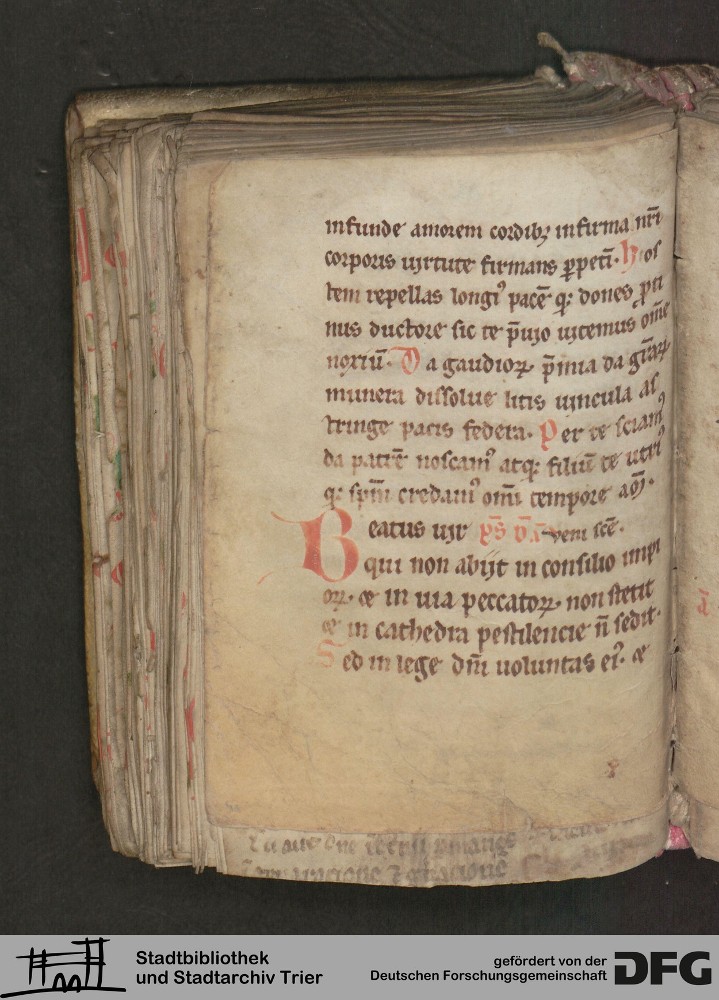 infunde amorem cordibꝫ infirma nr̄i
corporis uirtute firmans ꝑpeti. hos
tem repellas longiꝰ pacē qꝫ dones ꝓti
nus ductore sic te p̄uio uitemus om̄e
noxiū. Da gaudioꝝ p̄mia da gr̄aꝝ
munera dissolue litis uincula as
tringe pacis federa. Per te sciamꝰ
da patrē noscamꝰ atqꝫ filiū te utriꝰ
qꝫ sp̄m credamꝰ om̄i tempore am̄.
Beatus uir p̄s veni sc̄e.
qui non abijt in consilio impi
oꝝ. et in uia peccatoꝝ non stetit
et in cathedra pestilencie n̄ sedit.
Sed in lege dn̄i uoluntas eiꝰ. et
Stadtbibliothek
und Stadtarchiv Trier
gefördert von der
Deutschen Forschungsgemeinschaft DFG